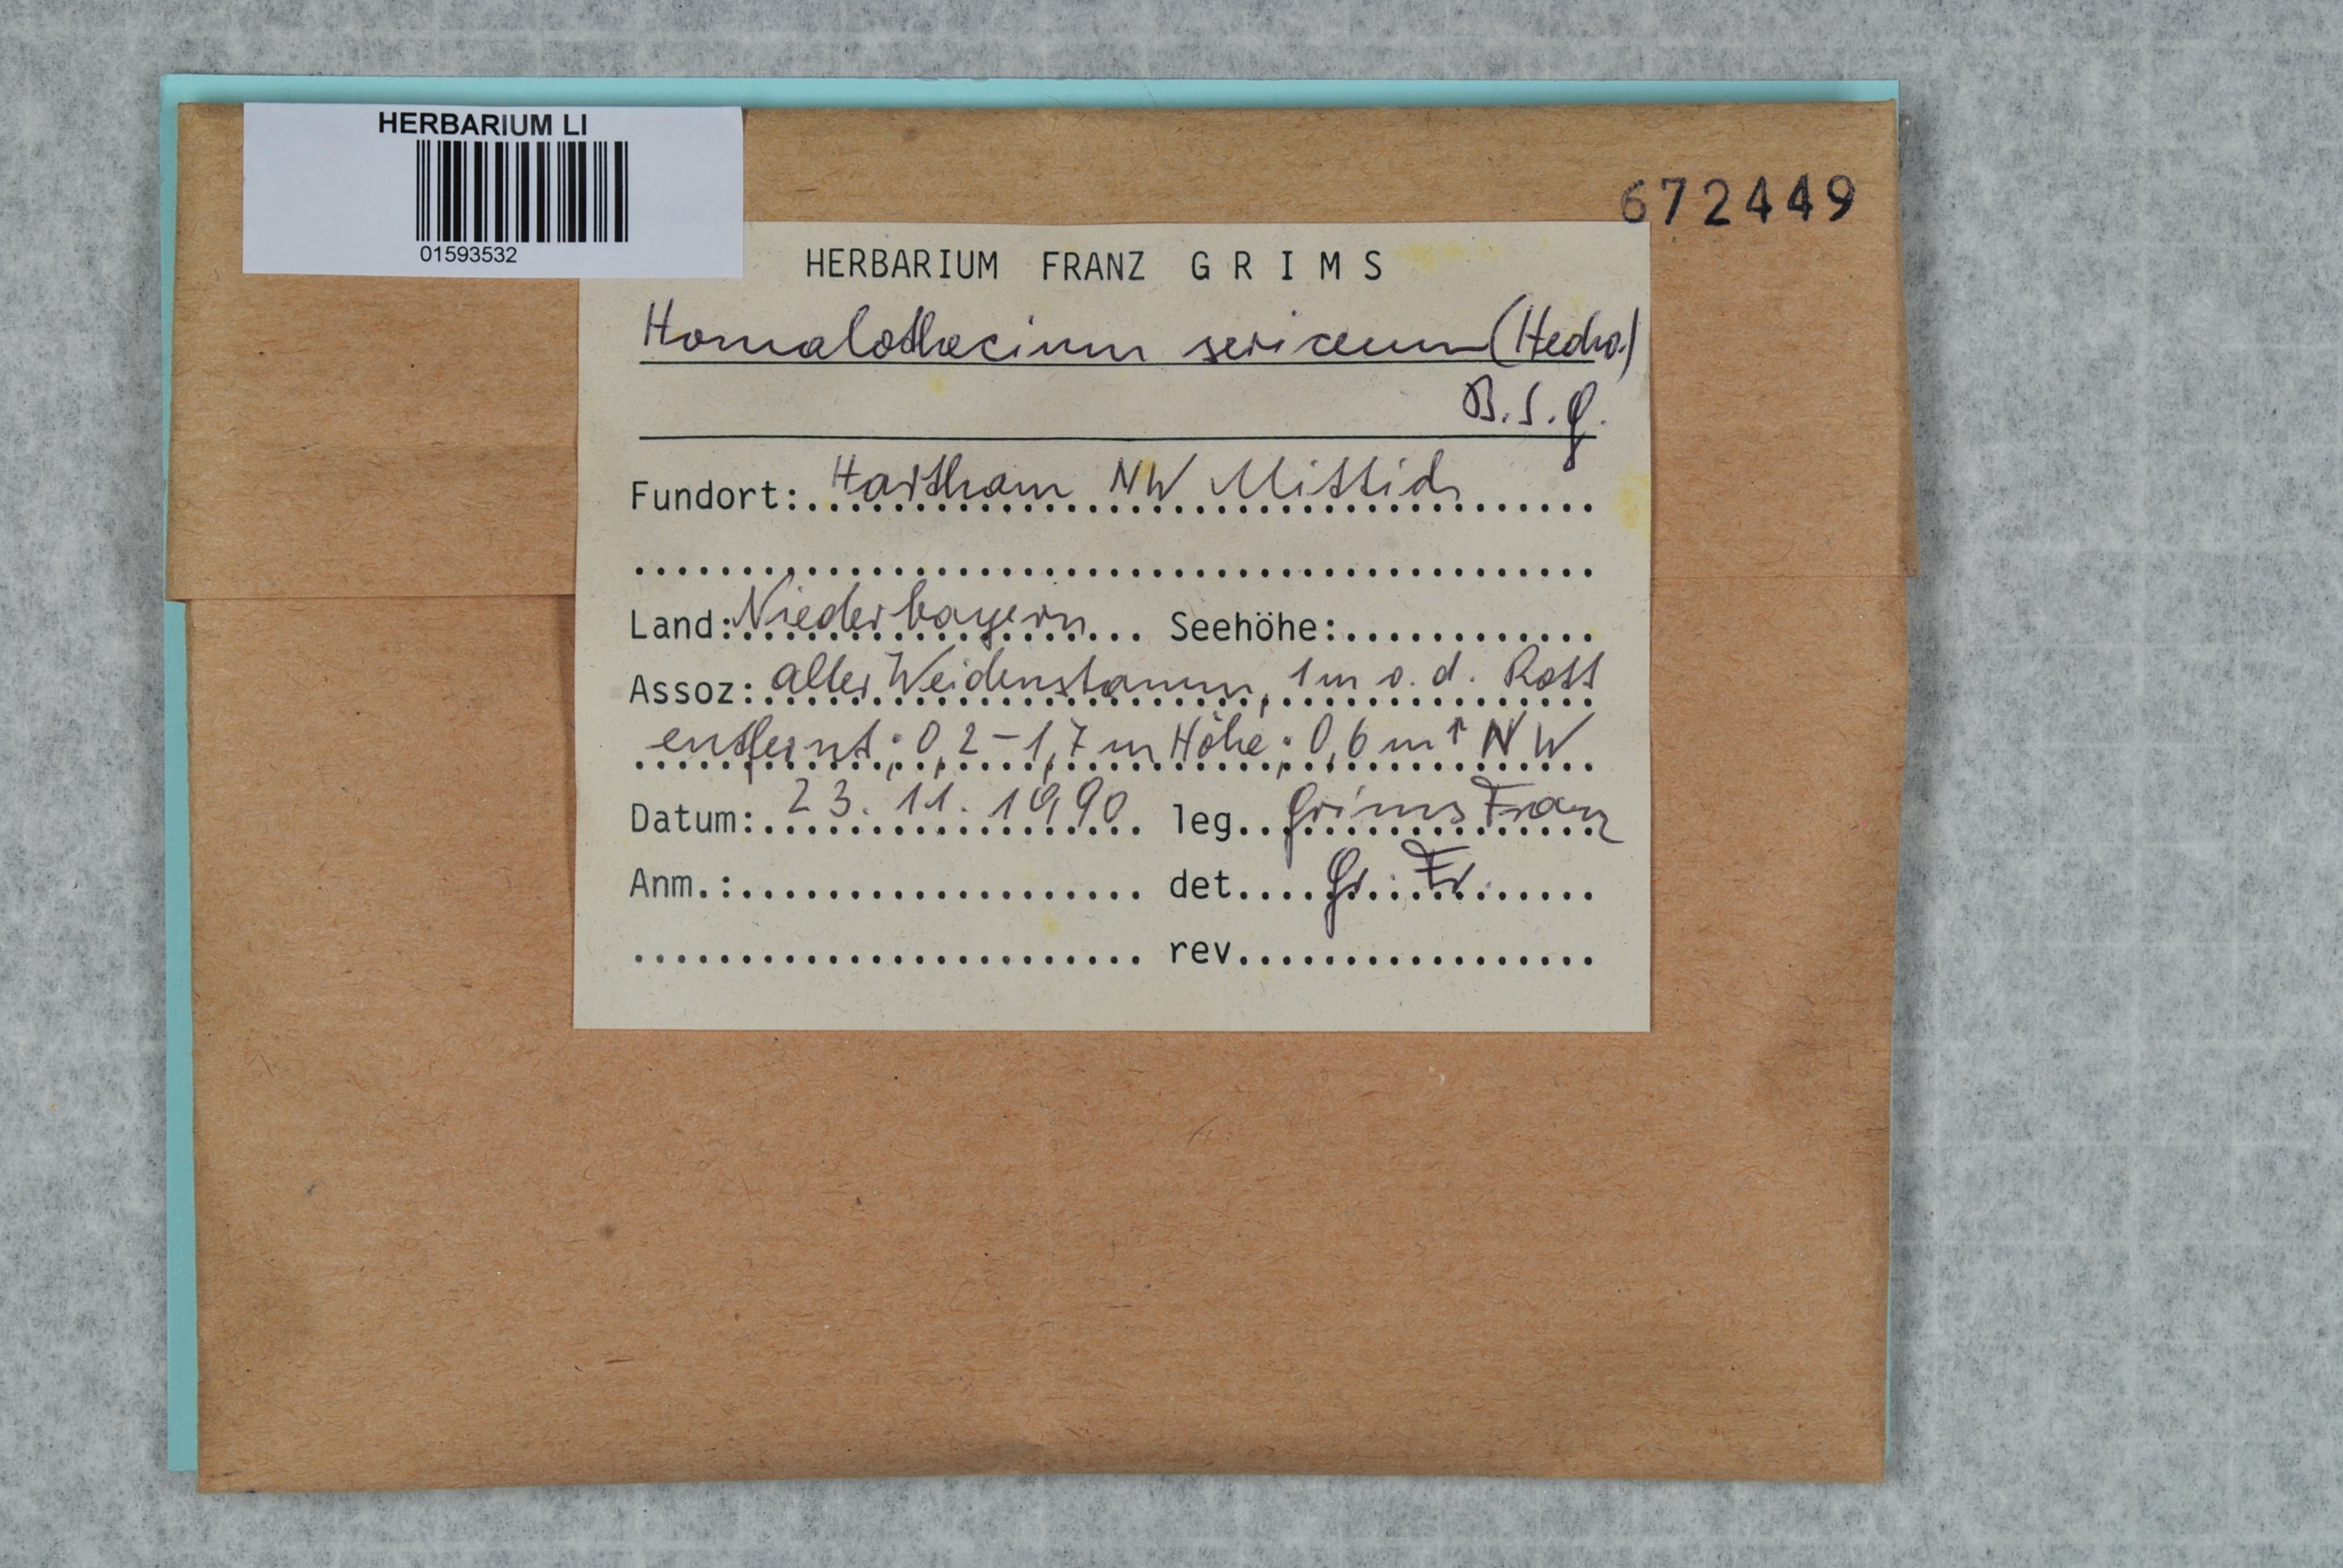 HERBARIUM LI
01593532
672449
HERBARIUM FRANZ G R I M S
Homalothecium sericeum (Hedw.)
B.S.G.
Fundort: Hartham NW Mittich
Land: Niederbayern Seehöhe:
Assoz: alter Weidenstamm, 1m v. d. Rott
entfernt; 0,2-1,7 m Höhe; 0,6 m ↑ NW
Datum: 23. 11. 1990 leg. Grims Franz
Anm.: det. Gr. Fr.
rev.